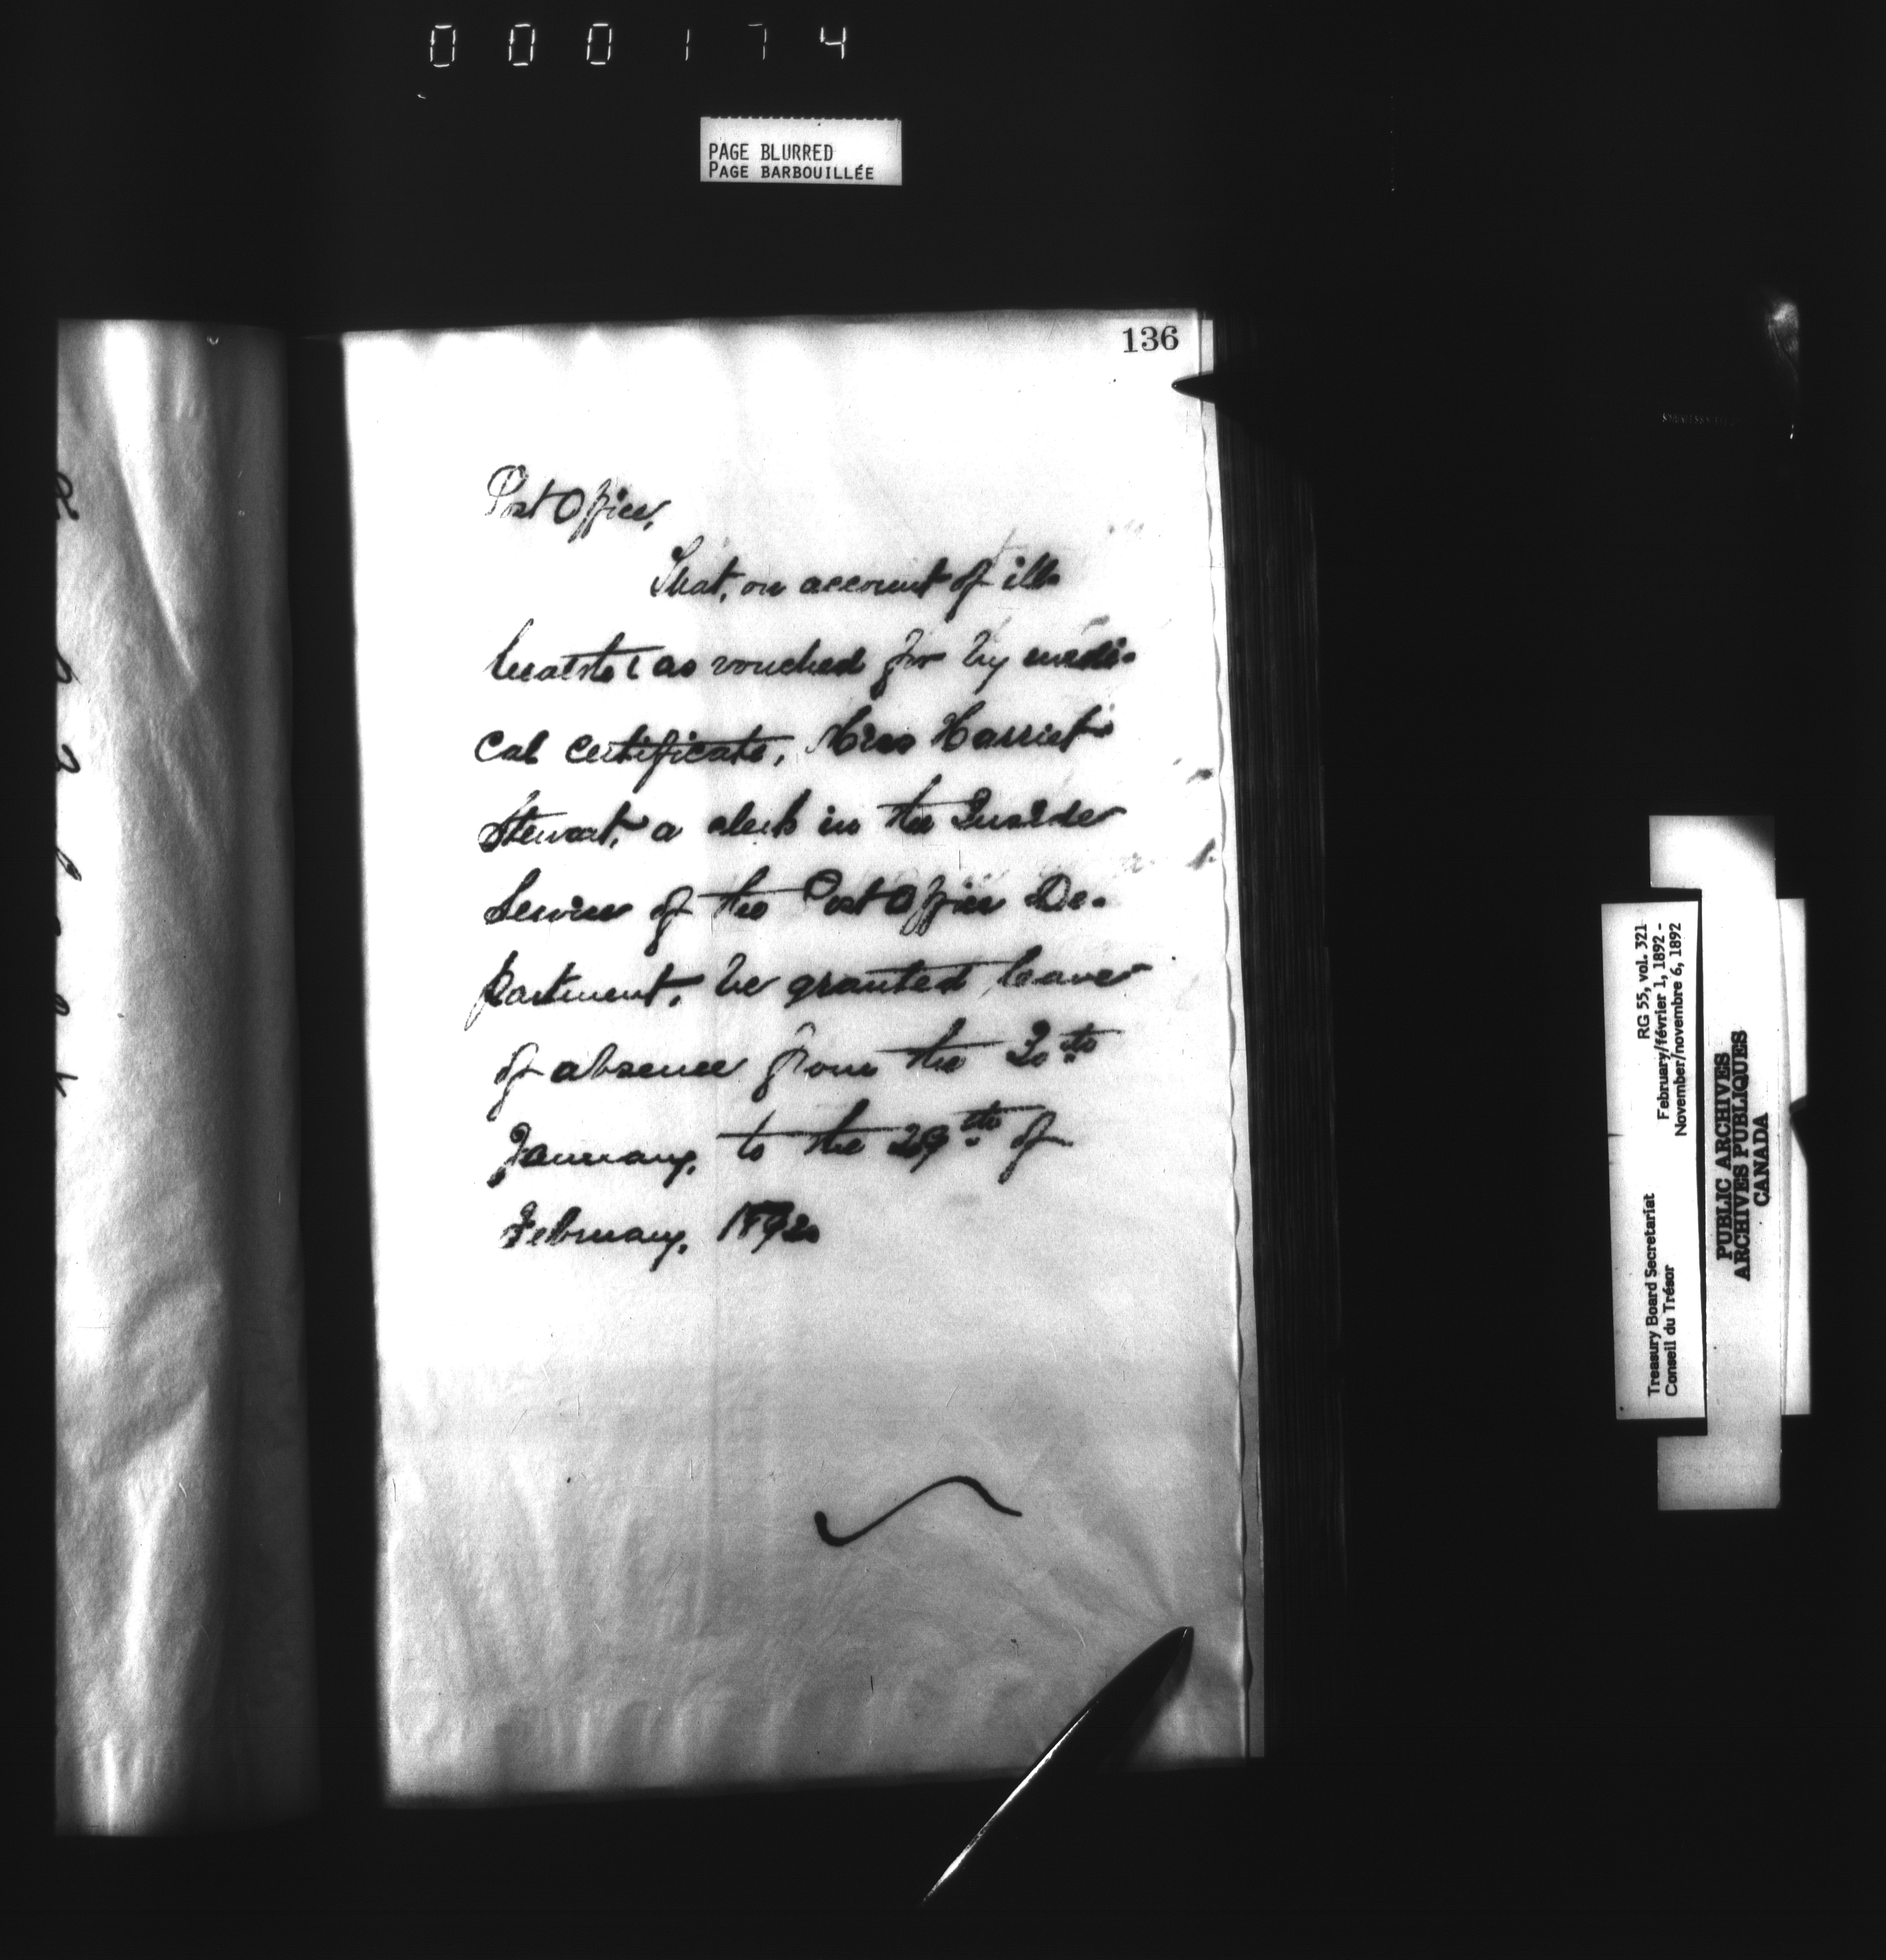 000174
PAGE BLURRED
PAGE BARBOUILLÉE
136
Post Office,
That, on account of ill
health as vouched for by medi-
cal certificate, Miss Harriet
Stewart, a clerk in the Inside
Service of the Post Office De-
partment, be granted leave
of absence from the
January, to the 29th of
February, 1892
RG 55, vol. 321
February/février 1, 1892 -
November/novembre 6, 1892
Treasury Board Secretariat
Conseil du Trésor
PUBLIC ARCHIVES
ARCHIVES PUBLIQUES
CANADA